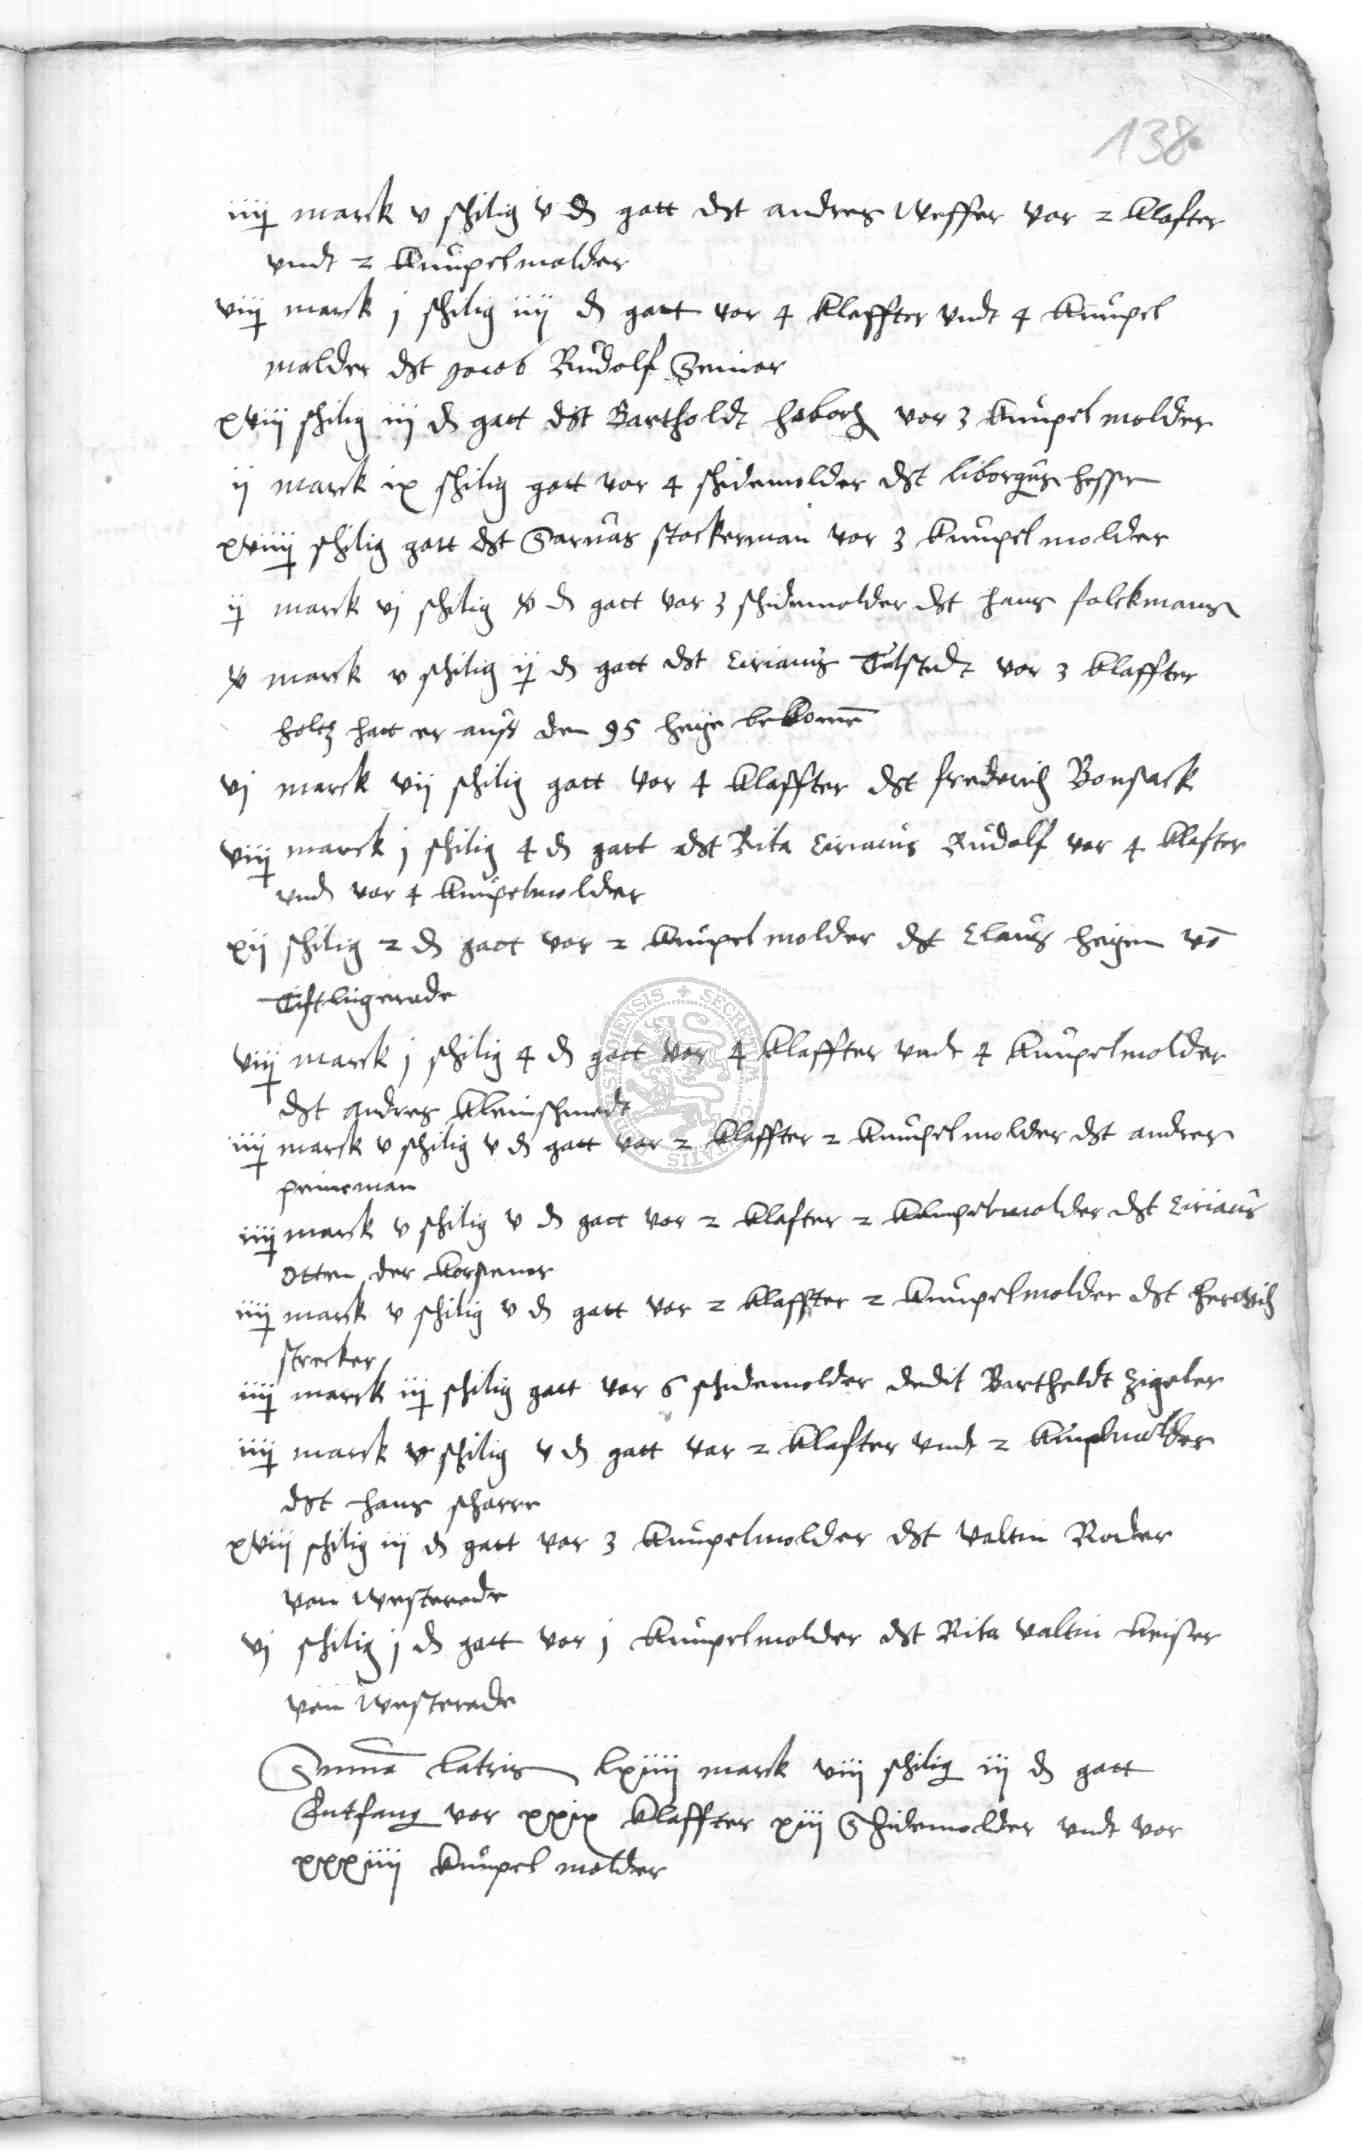 138
iiij marck v schilig v d gatt dt andres Weffer vor 2 klafter
vndt 2 knüpelmolder
viij marck j schilig iiij d gatt vor 4 klaffter vndt 4 knüpel
molder dt Jacob Rudolf Senior
xviij schilig iij d gatt dt Bartholdt vor 3 knüpelmolder
ij marck ix schilig gatt vor 4 schidemolder dt liborgus hesse
xviiij schilig gatt dt stockerman vor 3 knüpelmolder
ij marck vj schilig d gatt vor 3 schidemolder dt hans folckmans
marck v schilig ij d gatt dt Ciriacus Tulstedt vor 3 klaffter
holtz hatt er auß den 95 heige bekomē
vj marck vij schilig gatt vor 4 klaffter dt frederich Bonsack
viij marck j schilig 4 d gatt dt Rita Ciriacus Rudolf vor 4 klafter
vnd vor 4 knüpelmolder
xij schilig 2 d gatt vor 2 knüpelmolder dt Claus heigen vō
Tistlingerade
viij marck j schilig 4 d gatt vor 4 klaffter vndt 4 knüpelmolder
dt andres kleinschmedt
iiij marck v schilig v d gatt vor 2 klaffter 2 knüpelmolder dt andres
peineman
iiij marck v schilig v d gatt vor 2 klafter 2 knüpelmolder dt Ciriacus
Otten der korsener
iiij marck v schilig v d gatt vor 2 klaffter 2 knüpelmolder dt
strecker
iiij marck iij schilig gatt vor 6 schidemolder dedit Bartheldt Zigeler
iiij marck v schilig v d gatt vor 2 klafter vndt 2 knüpelmolder
dt hans scharre
xviij schilig iij d gatt vor 3 knüpelmolder dt valtin Roder
von Westerode
vj schilig j d gatt vor j knüpelmolder dt Rita valtin keiser
von Westerode
Summa latris lxiiij marck viij schilig iij d gatt
Entfang vor xxix klaffter xiij Schidemolder vndt vor
xxxiiij knüpelmolder